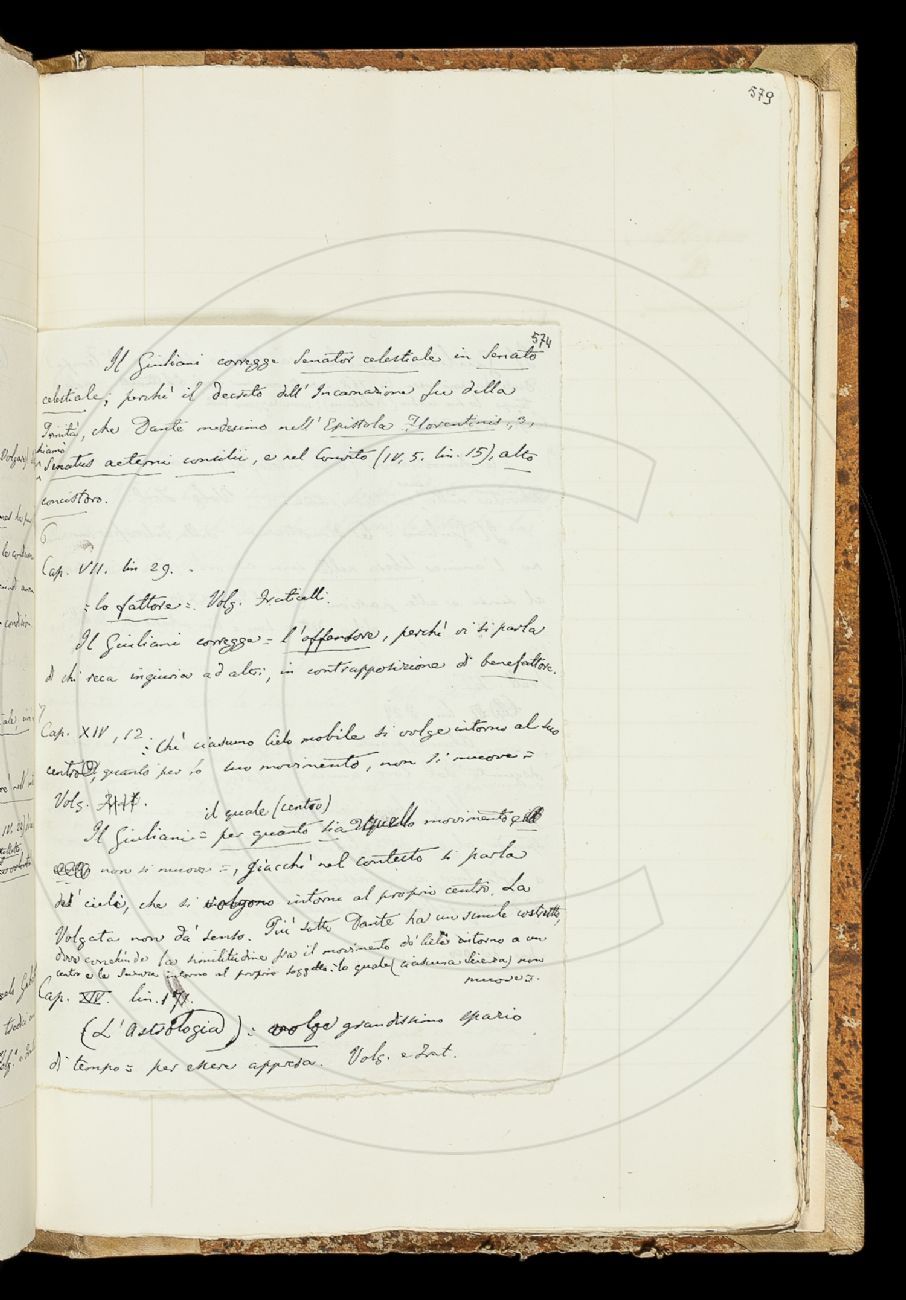 579
574
Il Giuliani corregge Senator celestiale in Senato
celestiale; perchè il decreto dell'Incarnazione fu della
Trinità, che Dante medesimo nell'Epistola Florentinis, 3,
chiama
Senatus aeterni consilii, e nel Convito (IV, 5. lin. 15), alto
concistoro.
6
Cap. VII. lin 29.
= lo fattore =. Volg. Fraticelli.
Il Giuliani corregge = l'offensore, perchè vi si parla
di chi reca ingiuria ad altri, in contrapposizione di benefattore.
7
Cap. XIV, 12 = Chè ciascuno cielo mobile si volge intorno al suo
centro, quanto per lo suo movimento, non si muove =
Volg.
il quale (centro)
Il Giuliani = per quanto sia quello movimento
non si muove =, giacchè nel contesto si parla
dei cieli, che si volgono intorno al proprio centro. La
Volgata non dà senso. Più sotto Dante ha un simile costrutto,
dove conchiude la similitudine fra il movimento de' Cieli intorno a un
centro e la Scienza intorno al proprio soggetto: lo quale (ciascuna Scienza) non
muove =.
Cap. XIV. lin.
(L'Astrologia) = volge grandissimo spazio
di tempo = per essere appresa. Volg. e Frat.